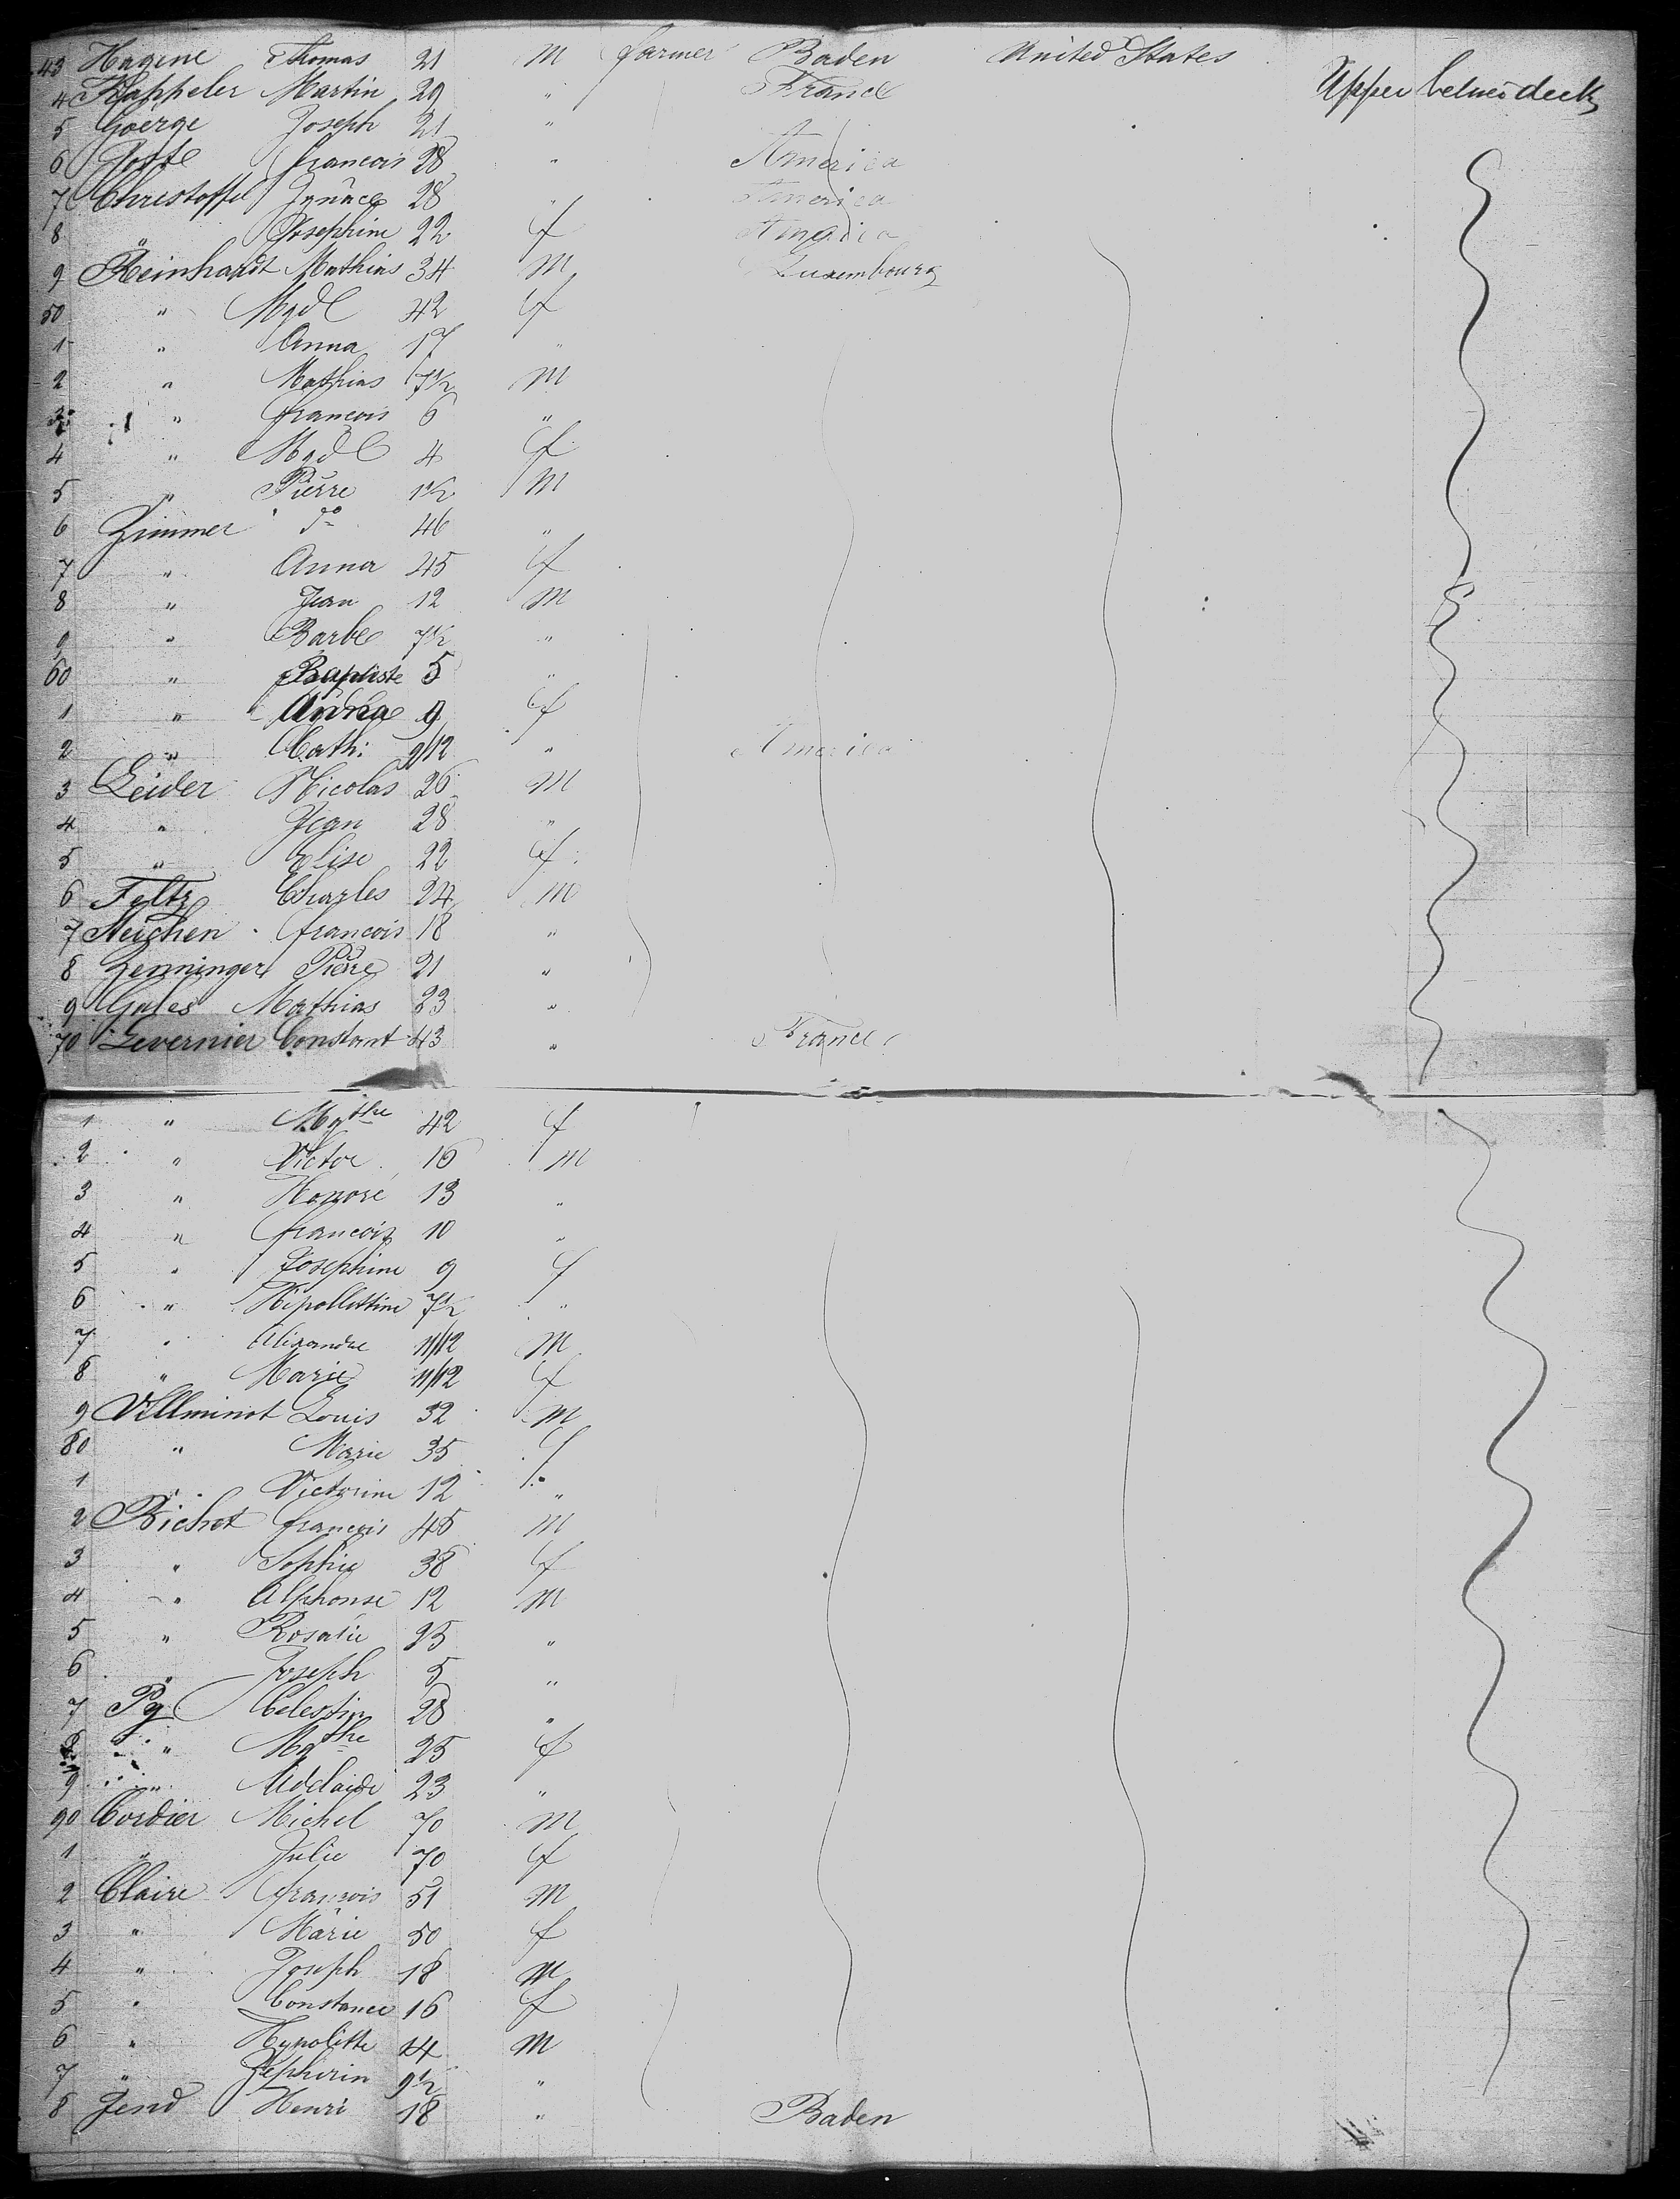 43 Hagene Thomas 21 M farmer Baden United States Upper betwe deck
4 Kappeler Martin 29 " France
5 Goerge Joseph 21 "
6 Joste francois 28 " America
7 Christoffel Ignace 28 " America
8 " Josephine 22 f America
9 Reinhardt Mathias 34 M Luxembourg
50 " Mgdl 42 f
1 " Anna 17 "
2 " Mathias 7½ M
3 " francois 6 "
4 " Mgdl 4 f
5 " Pierre 1½ M
6 Zimmer do 46 "
7 " Anna 45 f
8 " Jean 12 M
9 " Barbe 7½ "
60 " Baptiste 5 "
1 " 9 f
2 " Cath: 9/12 " America
3 Leider Nicolas 26 M
4 " Jean 28 "
5 " Elise 22 f
6 Feltz Charles 24 M
7 Meichen francois 18 "
8 Zenninger Pierre 21 "
9 Gales Mathias 23 "
70 Levernier Constant 43 " France
1 " Mgthe 42 f
2 " Victor 16 M
3 " Honoré 13 "
4 " francois 10 "
5 " Josephine 9 f
6 " Hipollittine 7½ "
7 " Alexandre 11/12 M
8 " Marie 11/12 f
9 Villminot Louis 32 M
80 " Marie 35 f
1 " Victorine 12 "
2 Bichet francois 45 M
3 " Sophie 38 f
4 " Alphonse 12 M
5 " Rosalie "
6 " Joseph 5 "
7 Py Celestin 28 "
8 " Mgthe 25 f
9 " Adelaide 23 "
90 Cordier Michel 70 M
1 " Julie 70 f
2 Claire francois 51 M
3 " Marie 50 f
4 " Joseph 18 M
5 " Constance 16 f
6 " Hypolitte 14 M
7 " Zephirin 9½ "
8 Jend Henri 18 " Baden